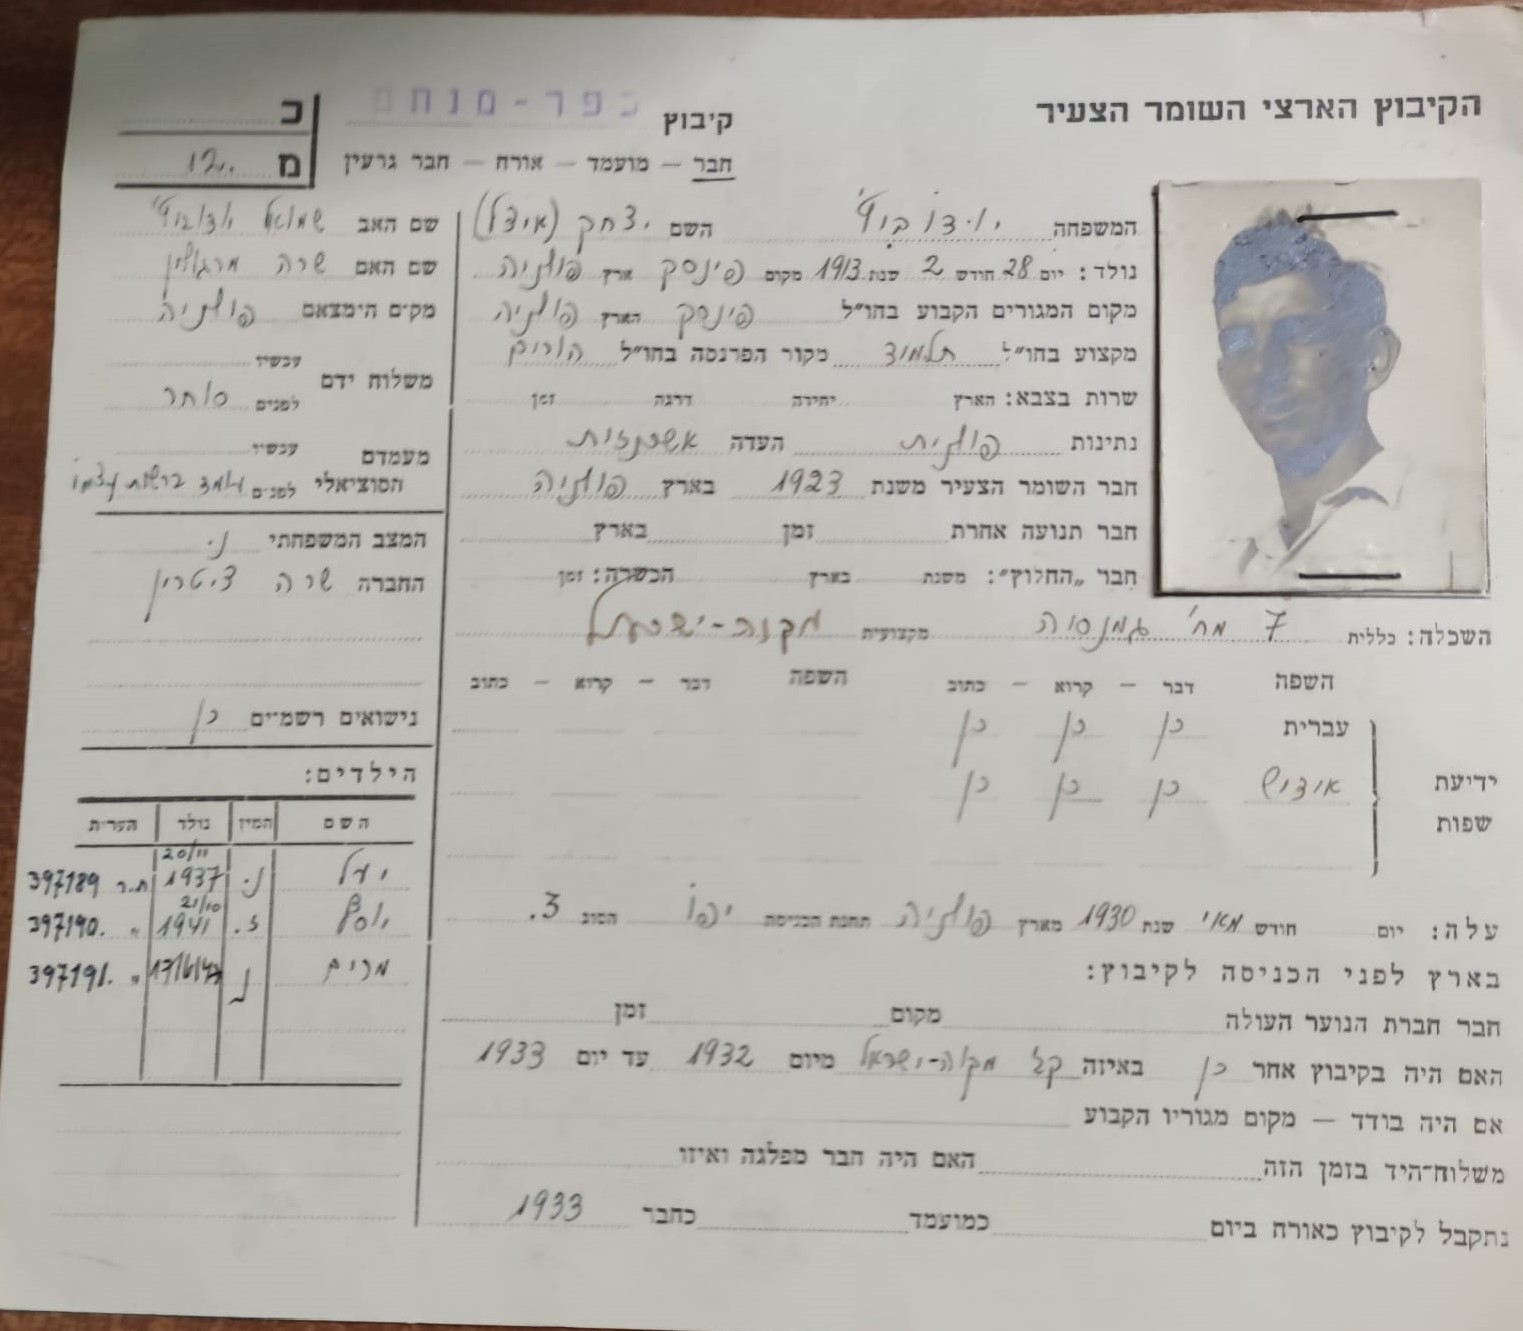 הקיבוץ הארצי השומר הצעיר
קיבוץ כפר-מנחם
חבר – מועמד – אורח – חבר גרעין
כ
מ 12.
המשפחה השם יצחק (איצל)
נולד: יום 28 חודש 2 שנת 1913 מקום פינסק ארץ פולניה
מקום המגורים הקבוע בחו"ל פינסק הארץ פולניה
מקצוע בחו"ל תלמיד מקור הפרנסה בחו"ל הורים
שרות בצבא: הארץ יחידה דרגה זמן
נתינות פולנית העדה אשכנזית
חבר השומר הצעיר משנת 1923 בארץ פולניה
חבר תנועה אחרת זמן בארץ
חבר „החלוץ": משנת בארץ הכשרה: זמן
השכלה: כללית 7 מח' גמנסיה מקצועית מקוה-ישראל
השפה דבר – קרוא – כתוב השפה דבר – קרוא – כתוב
ידיעת שפות
עברית כן כן כן
אידיש כן כן כן
עלה: יום חודש מאי שנת 1930 מארץ פולניה תחנת הכניסה יפו הסוג 3.
בארץ לפני הכניסה לקיבוץ:
חבר חברת הנוער העולה מקום זמן
האם היה בקיבוץ אחר כן באיזה מקוה-ישראל מיום 1932 עד יום 1933
אם היה בודד – מקום מגוריו הקבוע
משלוח-היד בזמן הזה האם היה חבר מפלגה ואיזו
נתקבל לקיבוץ כאורח ביום כמועמד כחבר 1933
שם האב שמואל
שם האם שרה מרגולין
מקים הימצאם פולניה
משלוח ידם עכשיו
לפנים סוחר
מעמדם הסוציאלי עכשיו
לפנים עומד ברשות עצמו
המצב המשפחתי נ.
החברה שרה ציטרין
נישואים רשמיים כן
הילדים:
השם המין נולד הערות
יעל נ. 20/11 1937 ת.ז 397189
יוסף ז. 21/10 1941 " 397190.
מרים נ " 397191.